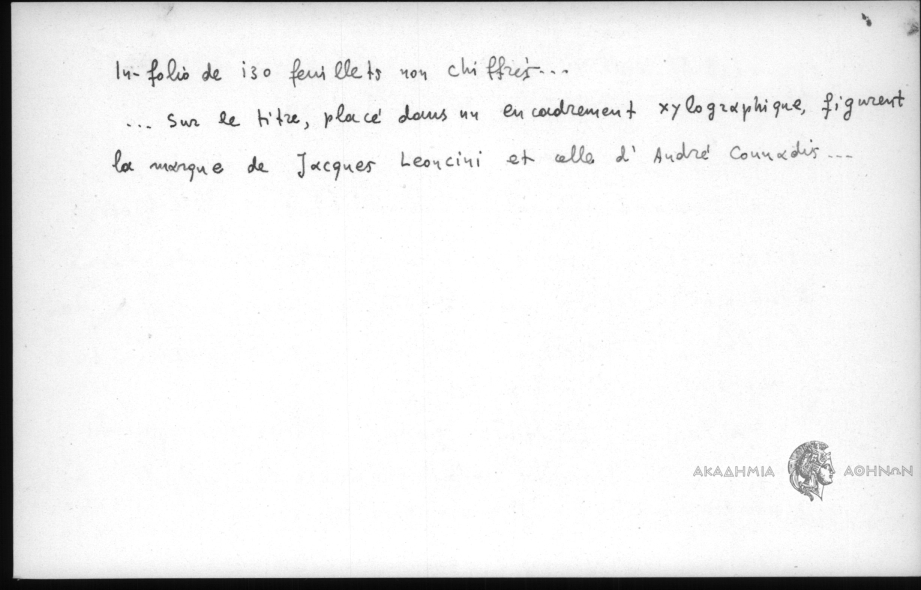 In-folio de 130 feuillets non chiffrés...
... Sur le titre, placé dans un encadrement xylographique, figurent
la marque de Jacques Leoncini et celle d' André Counadis...
ΑΚΑΔΗΜΙΑ ΑΘΗΝΩΝ